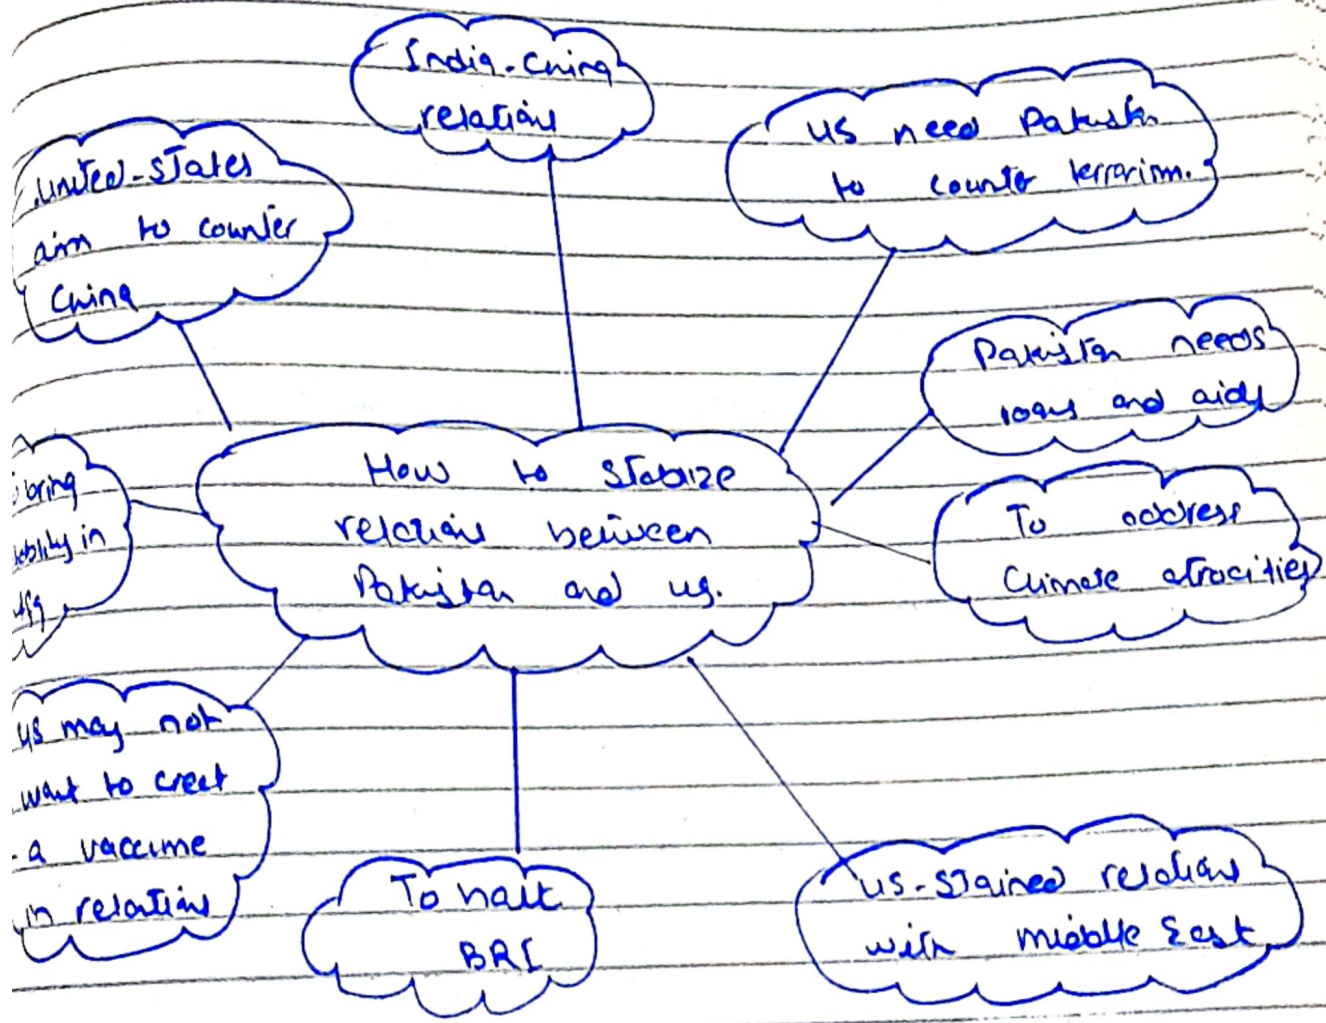 India-China
relations
US need Pakistn
to counter terrorism.
United-States
aim to counter
China
Pakistan needs
loans and aids
How to Stabize
relations between
Pakistan and us.
To address
Climate atrocities
bring
in
us may not
want to creet
a vaccume
in relations
To halt
BRI
US-Stained relations
with middle East